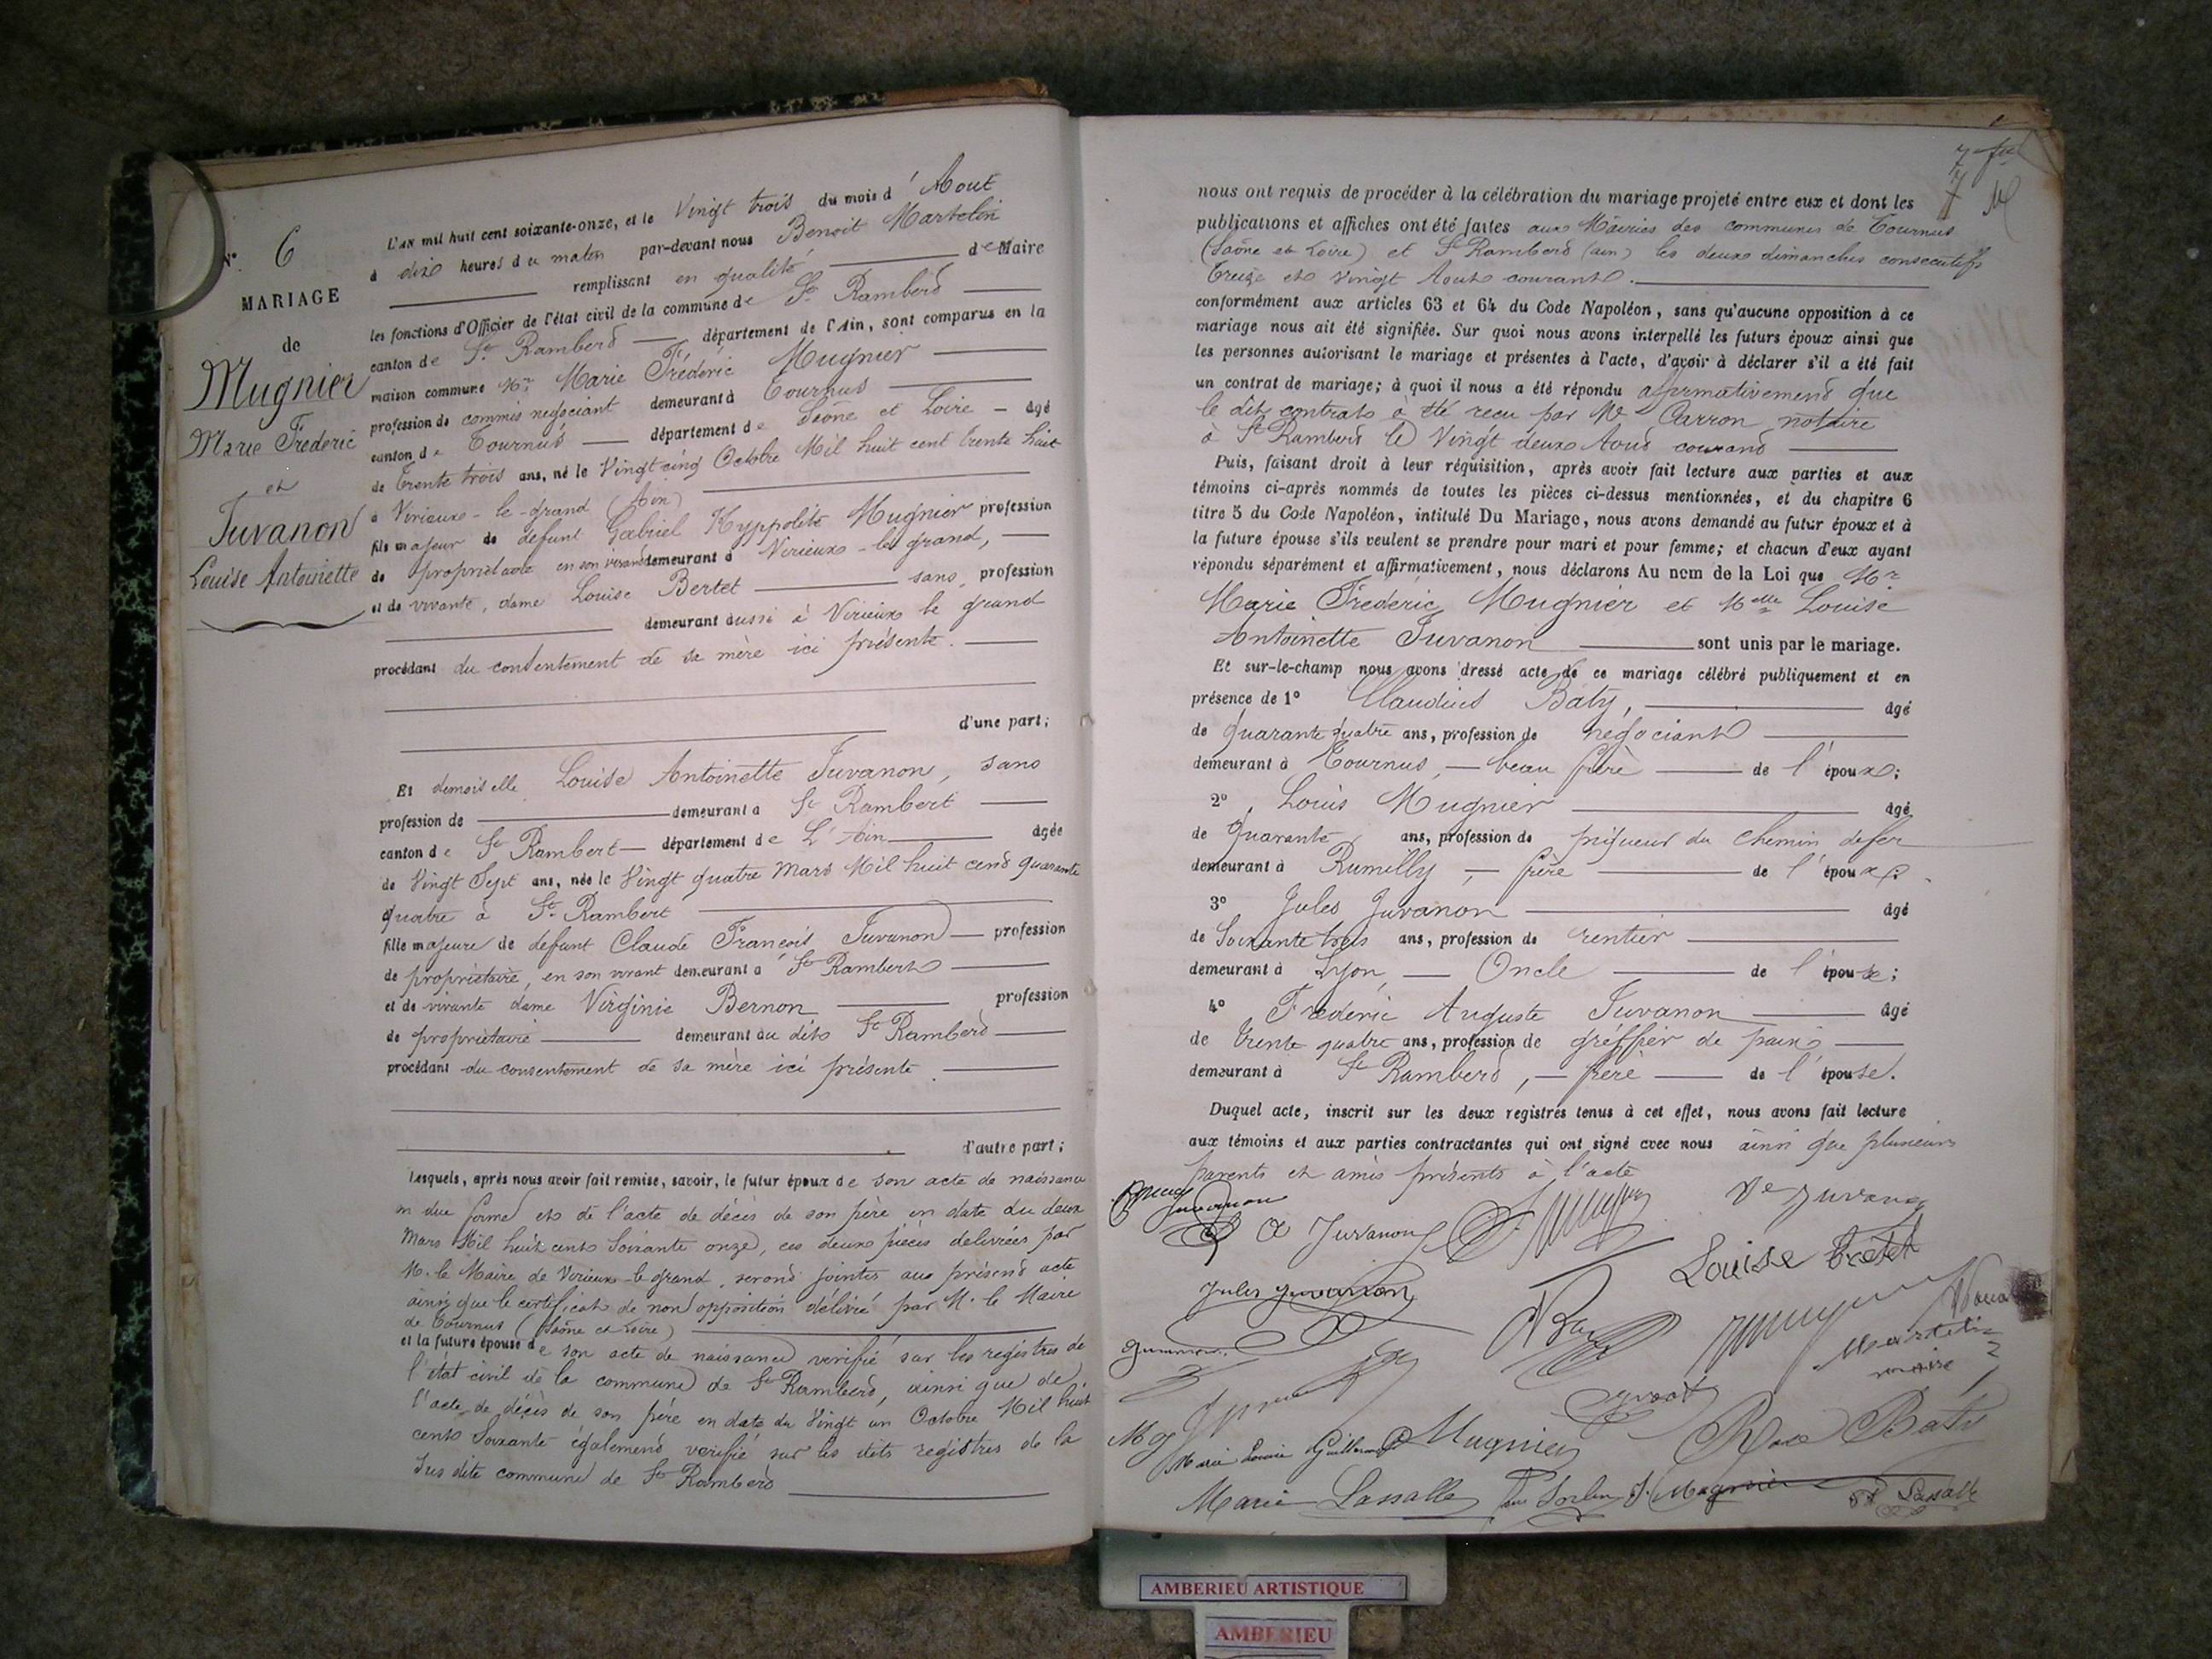 N° 6
MARIAGE
de
Mugnier
Marie Fréderic
et
Juvanon
Louise Antoinette
L'an mil huit cent soixante-onze, et le Vingt trois du mois d'Aout
à dix heures du matin par-devant nous Benoit Martelin
remplissant en qualité de Maire
les fonctions d'Officier de l'état civil de la commune de St Rambert
canton de St Rambert département de l'Ain, sont comparus en la
maison commune Mr Marie Fréderic Mugnier
profession de commis negociant demeurant à Tournus
canton de Tournus département de Saône et Loire - âgé
de Trente trois ans, né le Vingt cinq Octobre Mil huit cent trente huit
à Virieux-le-grand (Ain)
fils majeur de defunt Gabriel Hyppolite Mugnier profession
de propriétaire en son vivant demeurant à Virieux-le-grand,
et de vivante, dame Louise Bertet sans profession
demeurant aussi à Virieux le grand
procédant du consentement de sa mère ici présente.
d'une part;
Et demoiselle Louise Antoinette Juvanon, sans
profession de demeurant à St Rambert
canton de St Rambert département de L'Ain âgée
de Vingt Sept ans, née le Vingt quatre Mars Mil huit cent quarante
quatre à St Rambert
fille majeure de defunt Claude François Juvanon profession
de propriétaire, en son vivant demeurant à St Rambert
et de vivante dame Virginie Bernon profession
de propriétaire demeurant au dit St Rambert
procédant du consentement de sa mère ici présente.
d'autre part;
Lesquels, après nous avoir fait remise, savoir, le futur époux de son acte de naissance
en due forme et de l'acte de décès de son père en date du deux
Mars Mil huit cent Soixante onze, ces deux pièces delivrées par
M. le Maire de Virieux-le-grand, seront jointes au présent acte
ainsi que le certificat de non opposition délivré par M. le Maire
de Tournus (Saône et Loire)
et la future épouse de son acte de naissance verifié sur les registres de
l'état civil de la commune de St Rambert, ainsi que de
l'acte de décès de son père en date du Vingt un Octobre Mil huit
cent Soixante également verifié sur les dits registres de la
susdite commune de St Rambert
nous ont requis de procéder à la célébration du mariage projeté entre eux et dont les
publications et affiches ont été faites aux Mairies des communes de Tournus
(Saône et Loire) et St Rambert (ain) les deux dimanches consecutifs
Treize et Vingt Aout courant.
conformément aux articles 63 et 64 du Code Napoléon, sans qu'aucune opposition à ce
mariage nous ait été signifiée. Sur quoi nous avons interpellé les futurs époux ainsi que
les personnes autorisant le mariage et présentes à l'acte, d'avoir à déclarer s'il a été fait
un contrat de mariage; à quoi il nous a été répondu affirmativement que
le dit contrat à été reçu par Me Carron notaire
à St Rambert le Vingt deux Aout courant
Puis, faisant droit à leur réquisition, après avoir fait lecture aux parties et aux
témoins ci-après nommés de toutes les pièces ci-dessus mentionnées, et du chapitre 6
titre 5 du Code Napoléon, intitulé Du Mariage, nous avons demandé au futur époux et à
la future épouse s'ils veulent se prendre pour mari et pour femme; et chacun d'eux ayant
répondu séparément et affirmativement, nous déclarons Au nom de la Loi que Mr
Marie Fréderic Mugnier et Melle Louise
Antoinette Juvanon sont unis par le mariage.
Et sur-le-champ nous avons dressé acte de ce mariage célébré publiquement et en
présence de 1° Claudius Baty, âgé
de Quarante quatre ans, profession de negociant
demeurant à Tournus, - beau frère de l'époux;
2°, Louis Mugnier âgé
de Quarante ans, profession de piqueur du chemin de fer
demeurant à Rumilly, - frère de l'époux;
3° Jules Juvanon âgé
de Soixante trois ans, profession de rentier
demeurant à Lyon, Oncle de l'épouse;
4° Frédéric Auguste Juvanon âgé
de trente quatre ans, profession de gréffier de paix
demeurant à St Rambert, - frère de l'épouse.
Duquel acte, inscrit sur les deux registres tenus à cet effet, nous avons fait lecture
aux témoins et aux parties contractantes qui ont signé avec nous ainsi que plusieurs
parents et amis présents à l'acte
Juvanon
Juvanon
Ve Juvanon
Louise Bertet
Jules Juvanon
Martelin
maire
Marie Louise Mugnier
Rose Baty
Marie Lassalle
J. Mugnier
Lassalle
AMBERIEU ARTISTIQUE
AMBERIEU